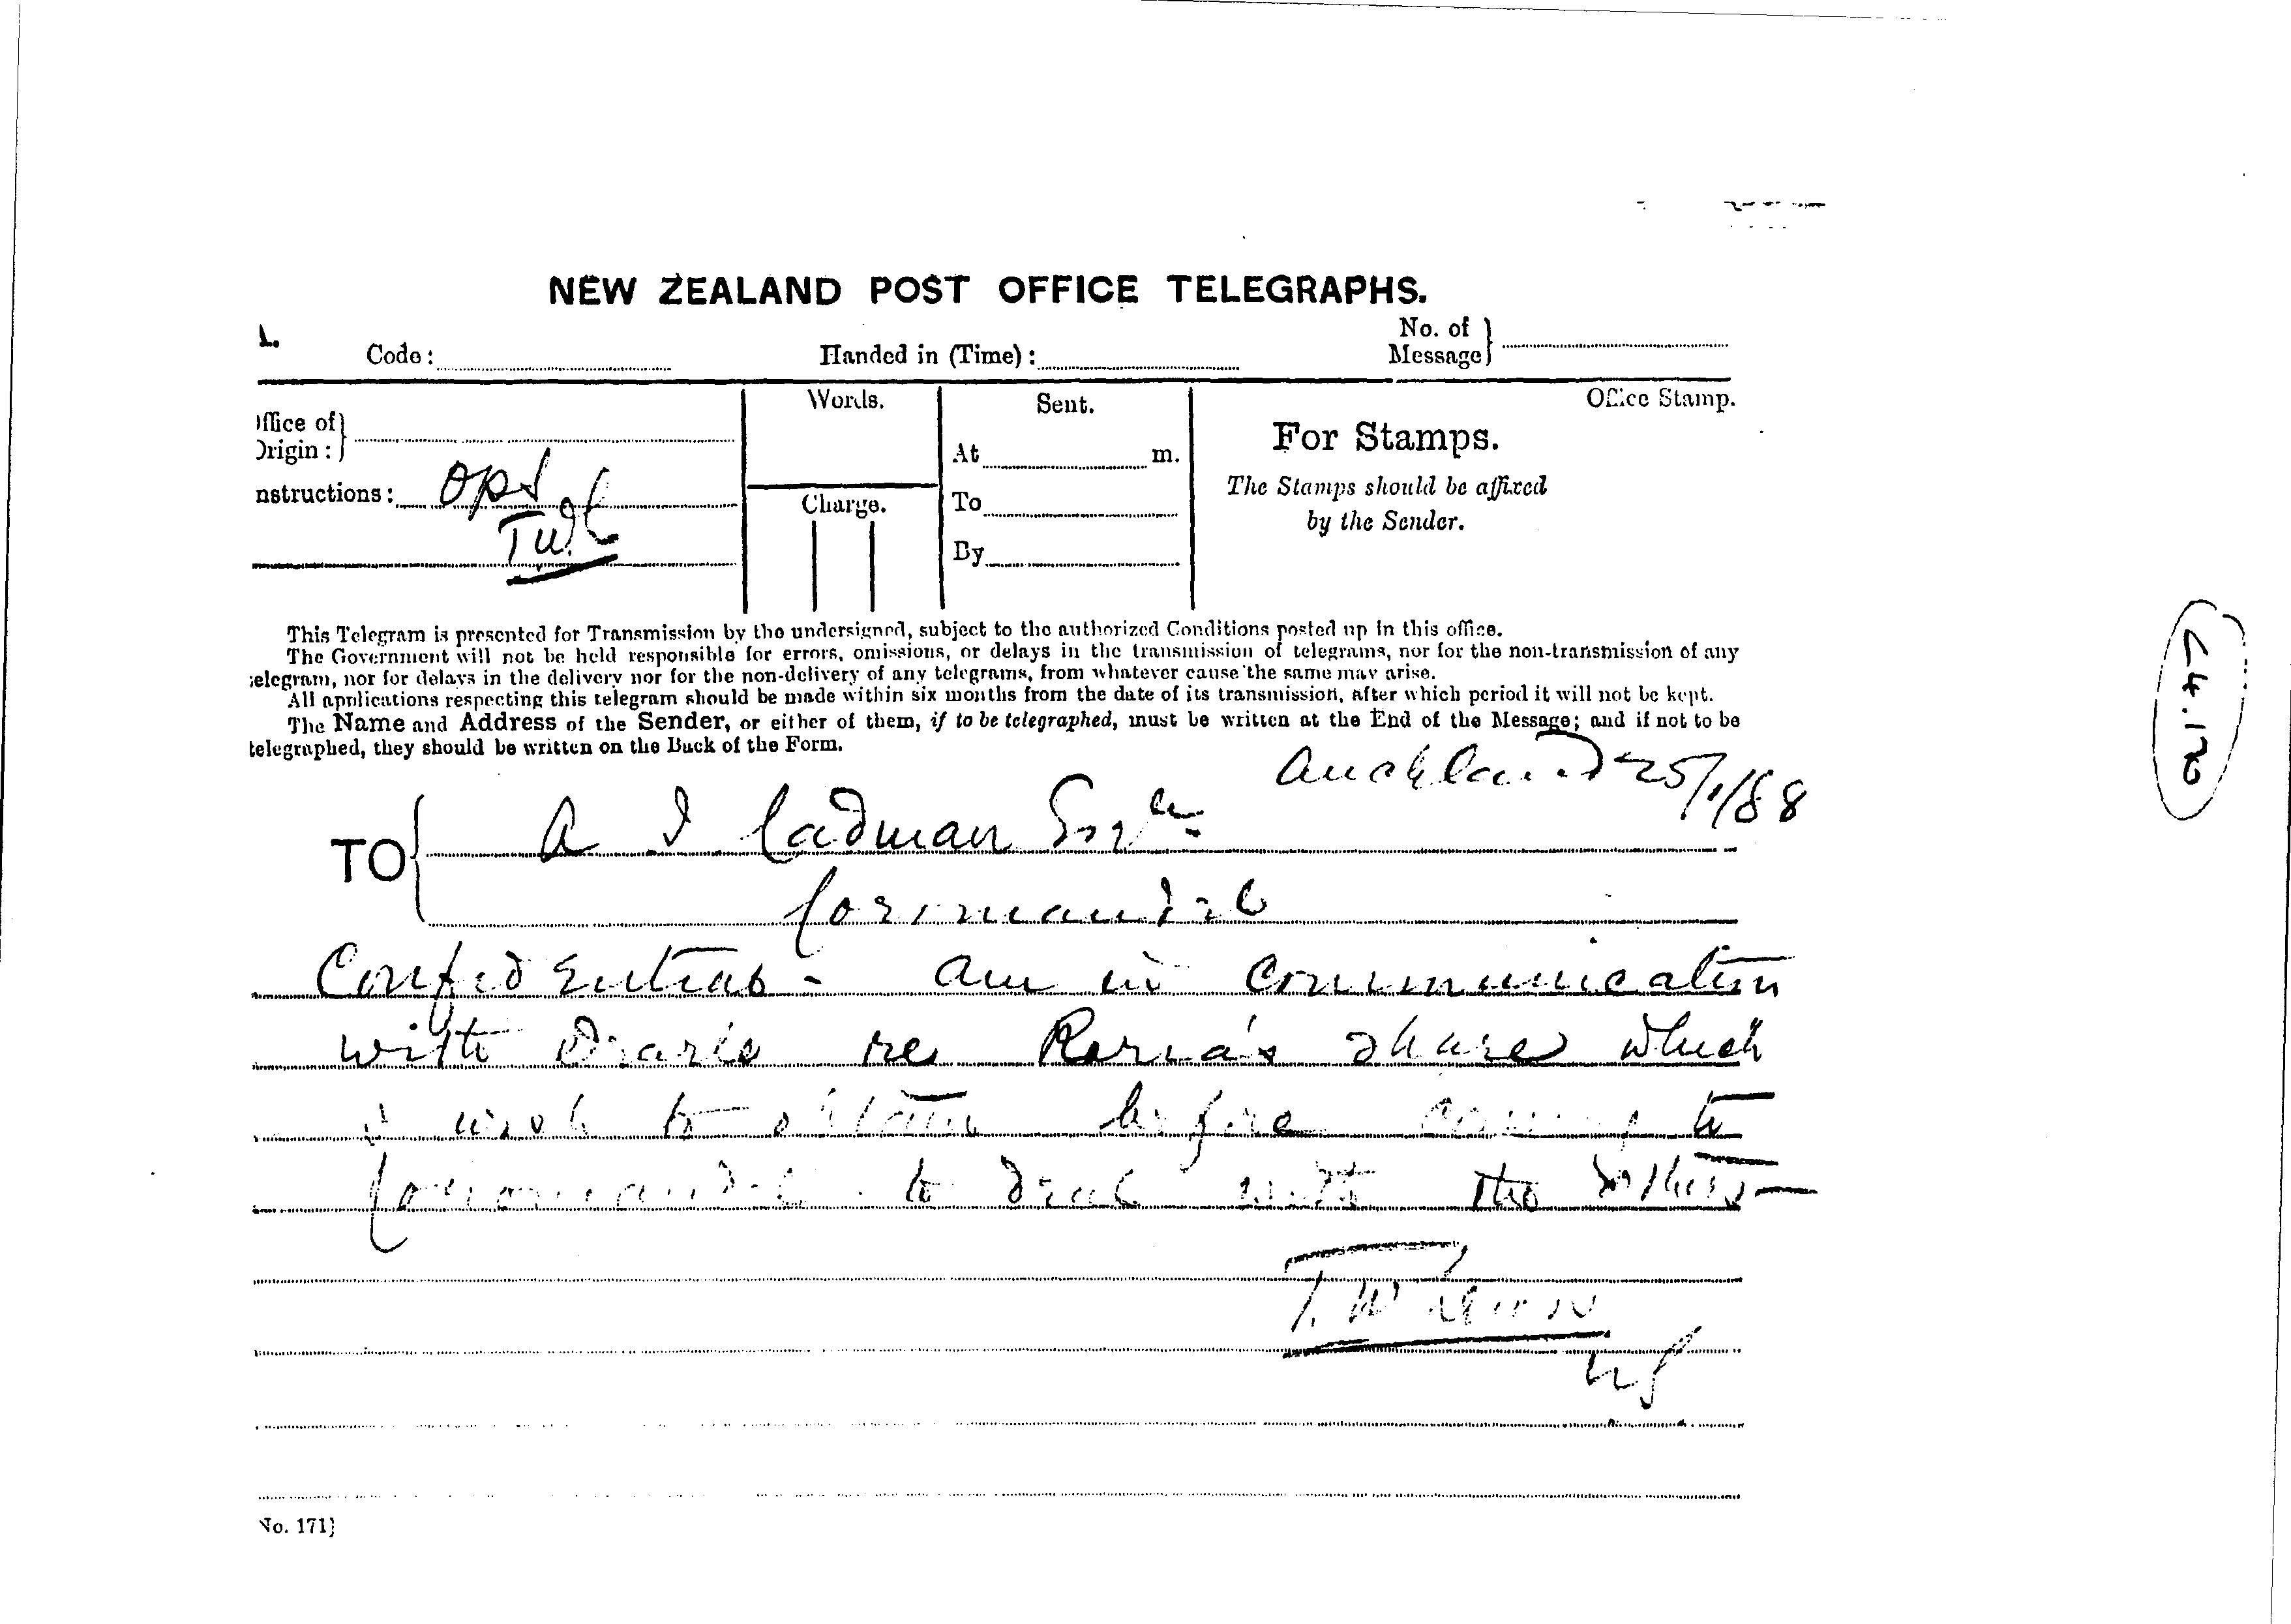 NEW ZEALAND POST OFFICE TELEGRAPHS.
Code :
Handed in (Time) :
No. of Message
Office Stamp.
ffice of
Origin :
nstructions : Opd
Words.
Charge.
Sent.
At m.
To
By
For Stamps.
The Stamps should be affixed
by the Sender.
This Telegram is presented for Transmission by the undersigned, subject to the authorized Conditions posted up in this office.
The Government will not be held responsible for errors, omissions, or delays in the transmission of telegrams, nor for the non-transmission of any
elegram, nor for delays in the delivery nor for the non-delivery of any telegrams, from whatever cause the same may arise.
All applications respecting this telegram should be made within six months from the date of its transmission, after which period it will not be kept.
The Name and Address of the Sender, or either of them, if to be telegraphed, must be written at the End of the Message; and if not to be
telegraphed, they should be written on the Back of the Form.
Auckland 25/1/88
TO A J Cadman Esqre
Coromandel
Confidential - am in communication
with re share which
I wish to obtain before coming to
Coromandel to deal with the others
No. 171]